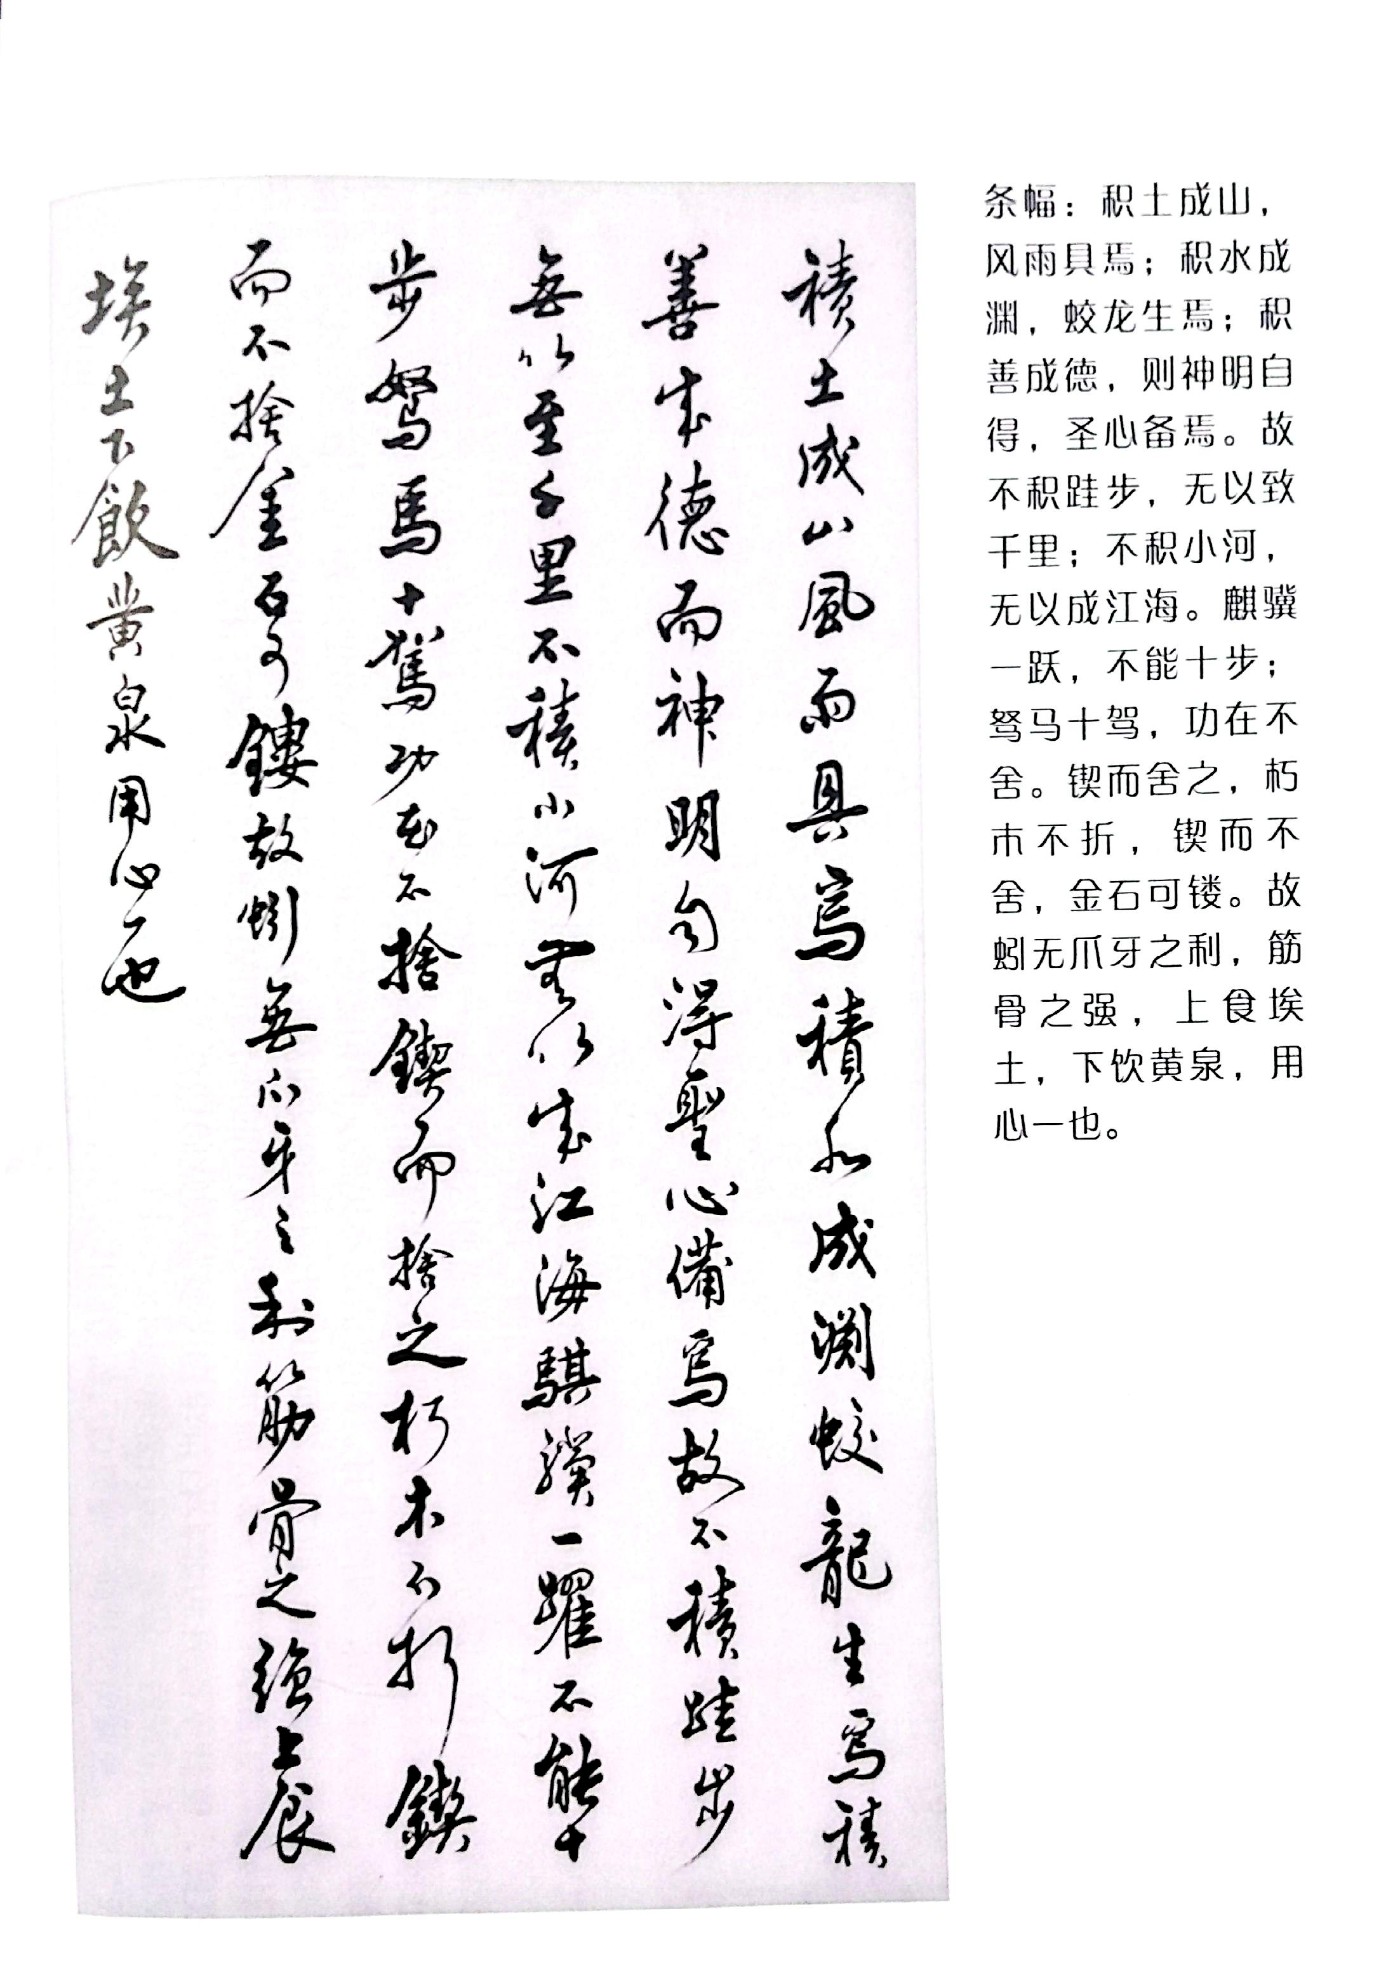 条幅：积土成山，
风雨具焉；积水成
渊，蛟龙生焉；积
善成德，则神明自
得，圣心备焉。故
不积跬步，无以致
千里；不积小河，
无以成江海。麒骥
一跃，不能十步；
驽马十驾，功在不
舍。锲而舍之，朽
木不折，锲而不
舍，金石可镂。故
蚓无爪牙之利，筋
骨之强，上食埃
土，下饮黄泉，用
心一也。
積土成山風雨具焉積水成淵蛟龍生焉積
善成德而神明自得聖心備焉故不積跬步
無以至千里不積小河無以成江海騏驥一躍不能十
步駑馬十駕功在不捨鍥而捨之朽木不折鍥
而不捨金石可鏤故蚓無爪牙之利筋骨之強上食
埃土下飲黄泉用心一也